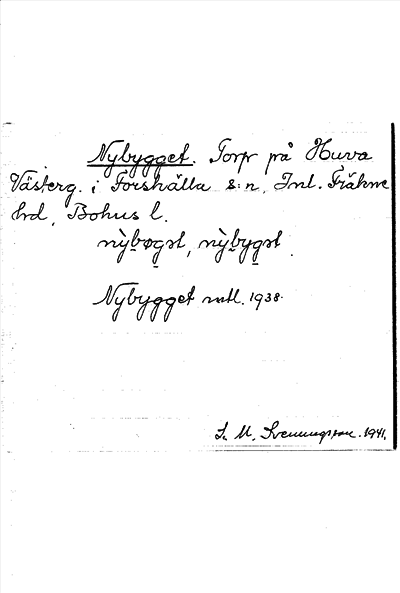 Nybygget. Torp på Huva
Västerg. i Forshälla s:n, Inl. Fräkne
hd, Bohus l.
nỳbøgst, nỳbygst.
Nybygget mtl. 1938.
S. M. Svenungsson. 1941.